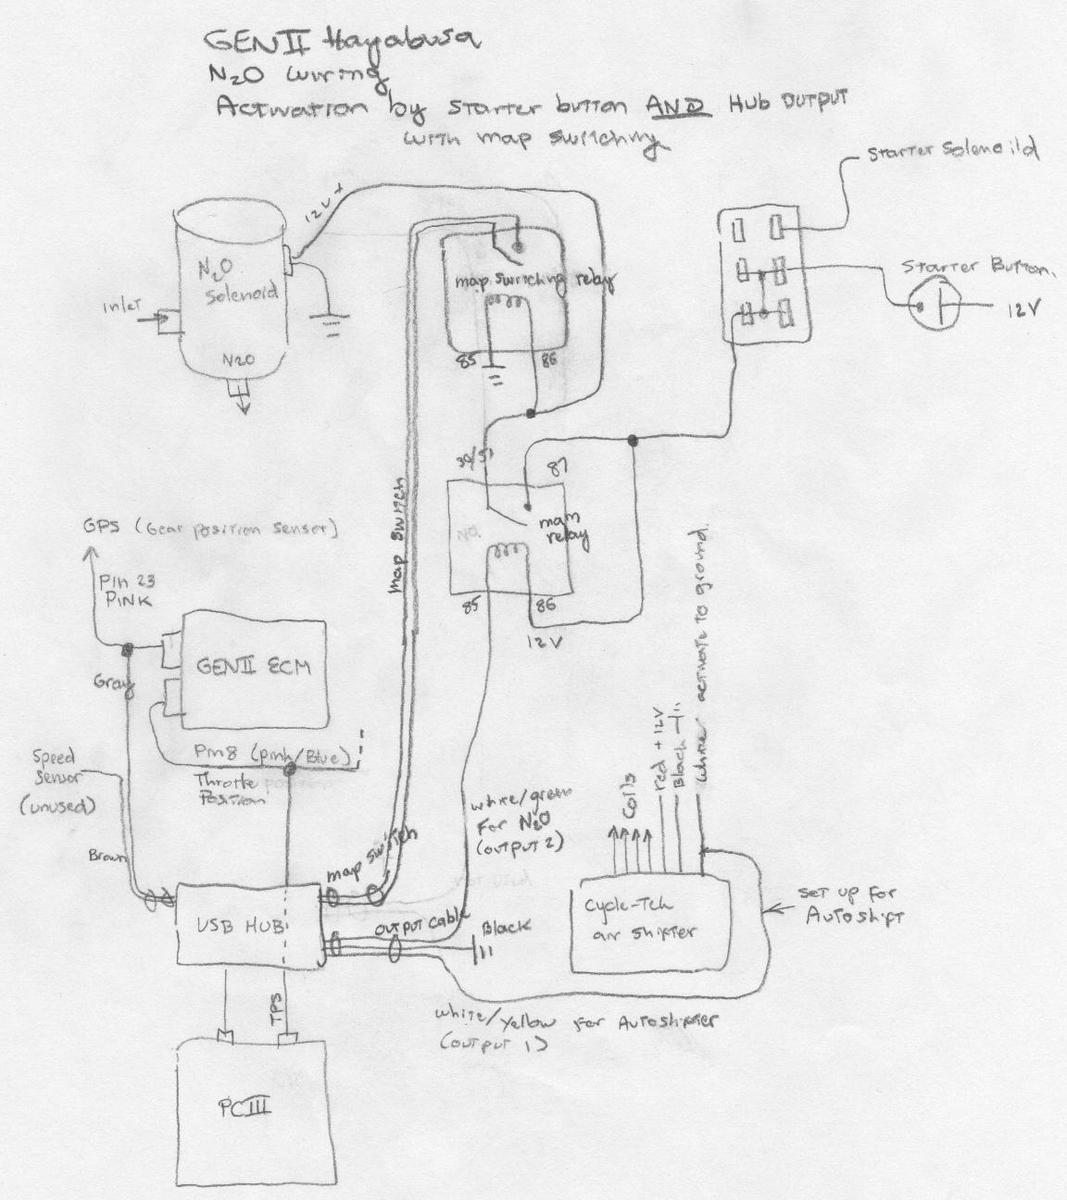 GEN II Hayabusa
N2O wiring
Activation by starter button AND Hub OUTPUT
with map switching
Starter Solenoild
12V +
N2O
Solenoid
inlet
N2O
map switching relay
85
86
Starter Button
12V
30/51
87
N.O.
main
relay
85
86
12V
map switch
GPS (Gear position sensor)
Pin 23
PINK
GEN II ECM
Gray
Pin 8 (pink/Blue)
Throttle
Position
Speed
Sensor
(unused)
Brown
map switch
white/green
For N2O
(output 2)
Coils
red + 12V
Black
white activate to ground
USB HUB
output cable
Black
Cycle-Tek
air shifter
set up for
Autoshift
TPS
white/yellow for Autoshifter
(output 1)
PC III